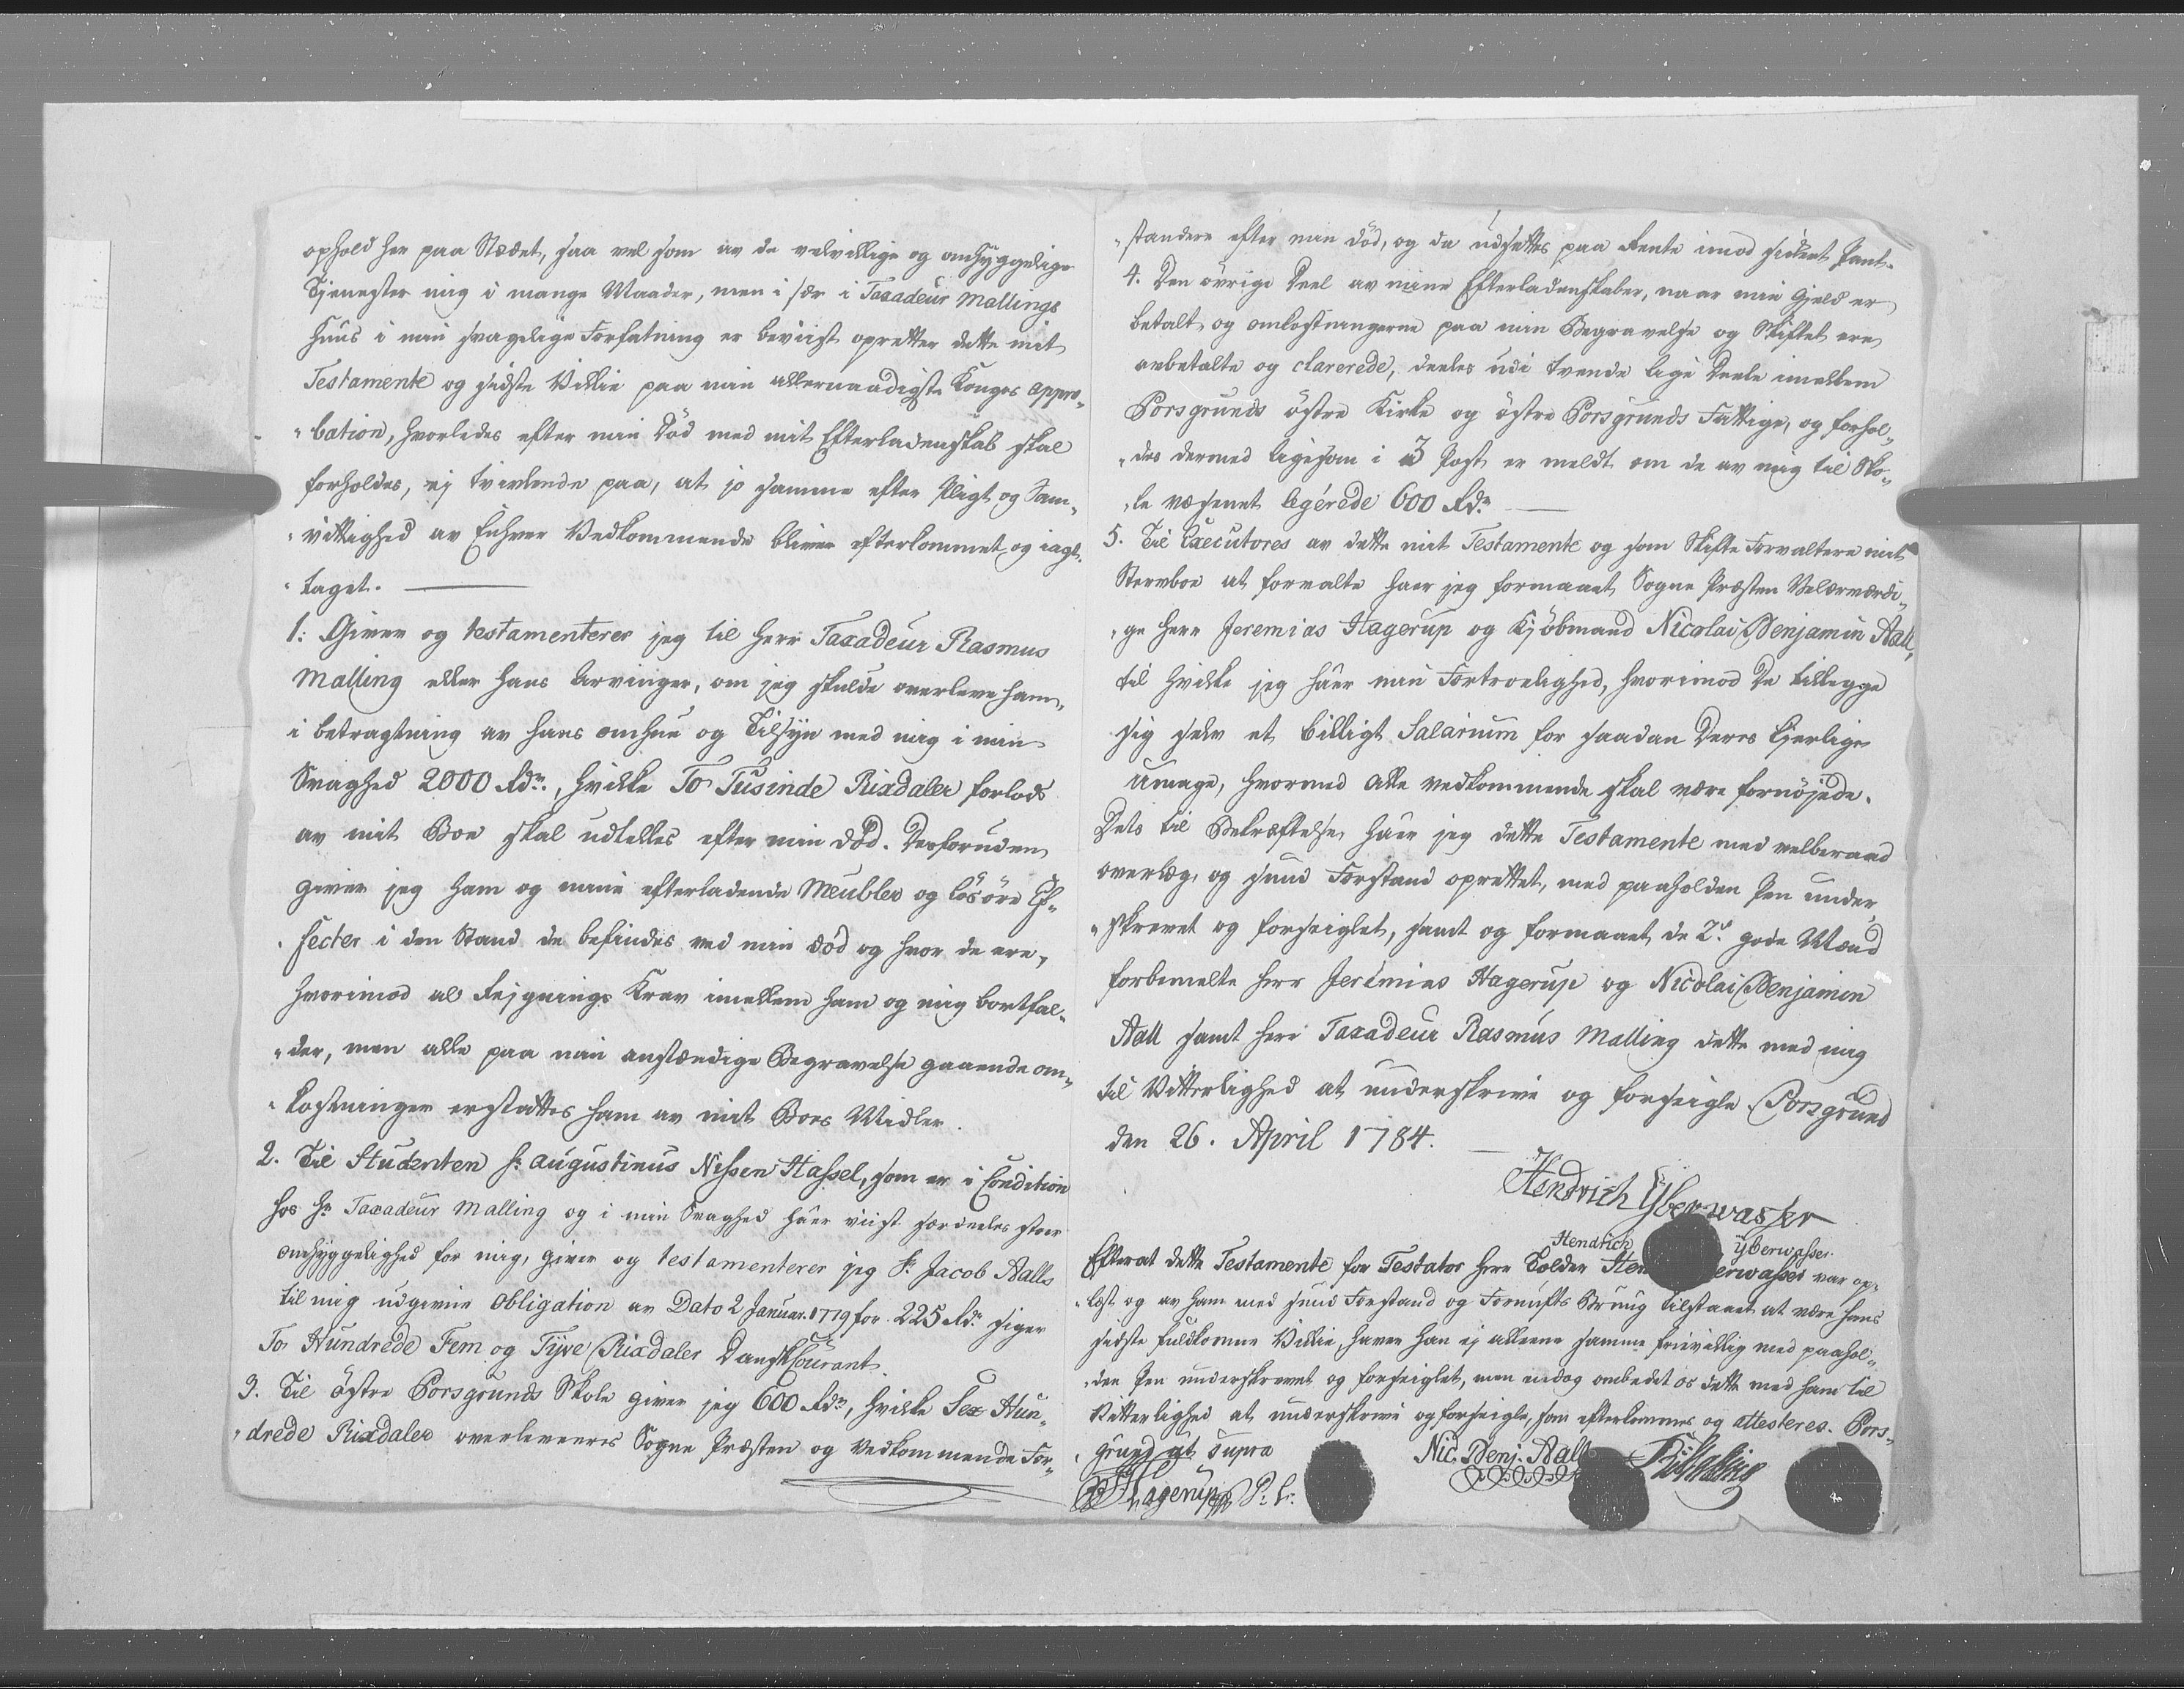 ophold her paa Stædet, saa vel som av de velvillige og omhyggelige
Tjenester mig i mange Maader, men i sær i Taxadeur Mallings
Huus i min svagelige Forfatning er beviist opretter dette mit
Testamente og sidste Villie paa min allernaadigste Konges appro„
„bation, hvorledes efter min Död med mit Efterladenskab skal
forholdes, ej tvivlende paa, at jo samme efter Pligt og Sam„
„vittighed av Enhver Vedkommende bliver efterkommet og iagt„
„taget.
1. Giver og testamenterer jeg til Herr Taxadeur Rasmus
Malling eller hans Arvinger, om jeg skulde overleve ham,
i betragtning av hans omhue og Tilsyn med mig i min
Svaghed 2000 Rdr., hvilke To Tusinde Rixdaler forlods
av mit Boe skal udtelles efter min död. Desforuden
giver jeg ham og mine efterladende Meubler og lösöre Ef„
„fecter i den Stand de befindes ved min död og hvor de ere,
hvorimod al Rejgnings Krav imellem ham og mig bortfal„
„der, men alle paa min anstændige Begravelse gaaende om„
„kostninger erstattes ham av mit Boes Midler.
2. Til Studenten Sr. Augustinus Nissen Hassel, som er i Condition
hos Hr. Taxadeur Malling og i min Svaghed haver viist særdeeles stoer
omhyggelighed for mig, giver og testamenterer jeg Sr. Jacob Aalls
til mig udgivne Obligation av Dato 2 Januar. 1779 for 225 Rdr. siger
To Hundrede Fem og Tyve Rixdaler Dansk Courant.
3. Til östre Porsgrunds Skole giver jeg 600 Rdr., hvilke Sex Hun„
„drede Rixdaler overleveres Sogne Præsten og vedkommende For„
„standere efter min död, og da udsættes paa Rente imod sikkert Pant.
4. Den övrige Deel av mine Efterladenskaber, naar min Gjeld er
betalt og omkostningerne paa min Begravelse og Skiftet ere
avbetalte og clarerede, deeles udi tvende lige Deele imellem
Porsgrunds östre Kirke og östre Porsgrunds Fattige, og forhol„
„des dermed ligesom i 3 Post er meldt om de av mig til Sko„
„le væsenet legerede 600 Rdr.
5. Til Executores av dette mit Testamente og som Skifte Forvaltere mit
Stervboe at forvalte haver jeg formaaet Sogne Præsten Velærværdi„
„ge Herr Jeremias Hagerup og Kjöbmand Nicolai Benjamin Aall,
til hvilke jeg haver min Fortroelighed, hvorimod De tillegge
sig selv et billigt Salarium for saadan Deres kjerlige
Umage, hvormed alle vedkommende skal være fornöjede.
Dets til Bekræftelse haver jeg dette Testamente med velberaad
overlæg, og sund Forstand oprettet, med paaholden Pen under
„skrevet og forseiglet, samt og formaaet de 2de gode Mænd
forbemelte Herr Jeremias Hagerup og Nicolai Benjamin
Aall samt Herr Taxadeur Rasmus Malling dette med mig
til Vitterlighed at underskrive og forseigle. Porsgrund
den 26. April 1784.
Hendrich Yberwasser
Hendrich Yberwasser.
Efterat dette Testamente for Testator Herr Tolder var op„
„læst og av ham med sund Forstand og Fornufts Brug tilstaaet at være hans
sidste fuldkomne Villie, haver han ej alleene samme frivillig med paahol„
„den Pen underskrevet og forseiglet, men endog ombedet os dette med ham til
Vitterlighed at underskrive og forseigle, som efterkommes og attesteres. Pors„
„grund ut supra
Hagerup P: L: Nic. Benj. Aall RMalling